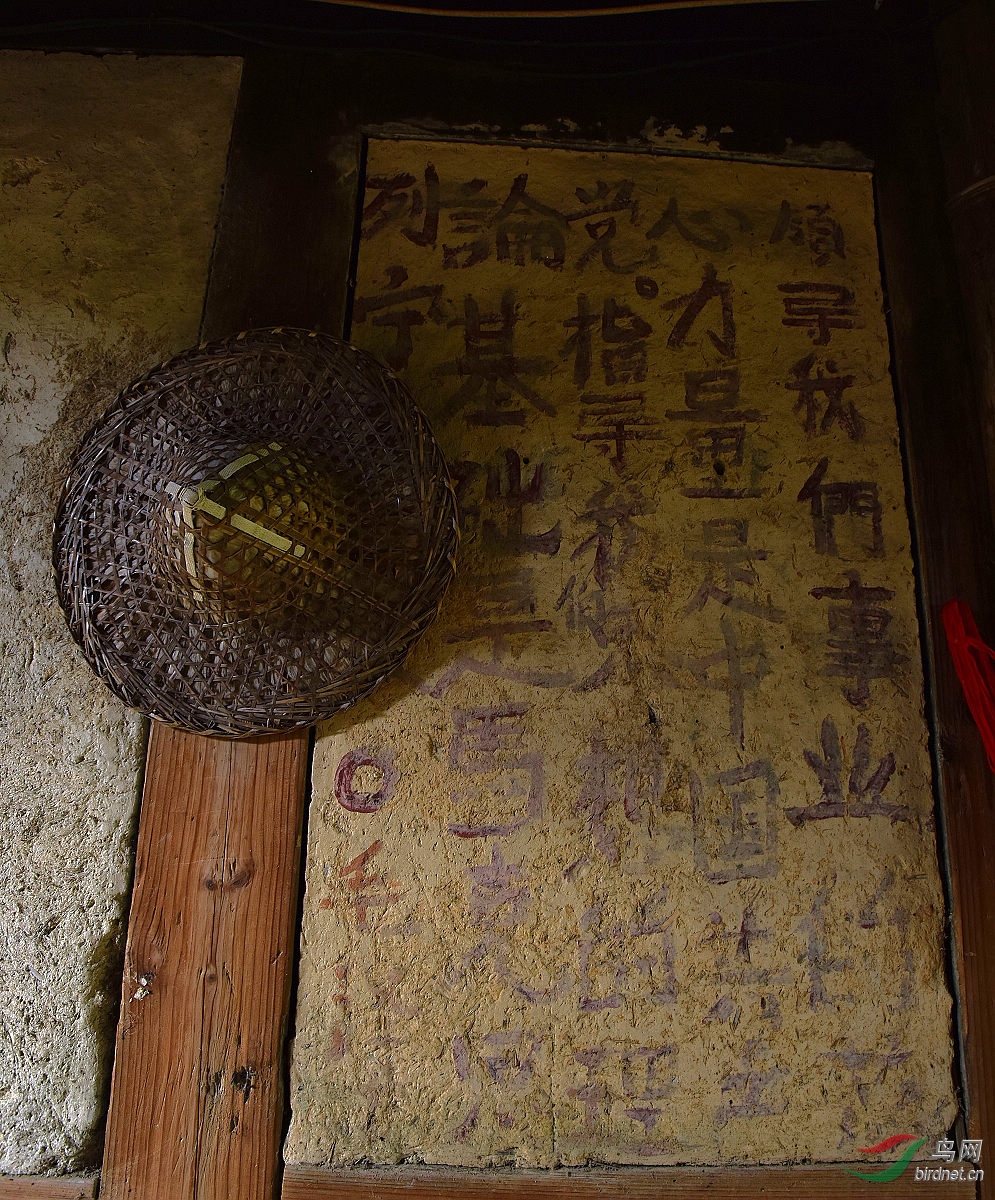 領导我們事业的核
心力量是中国共产
党。指导我们思想的理
論基础是馬克思
列宁